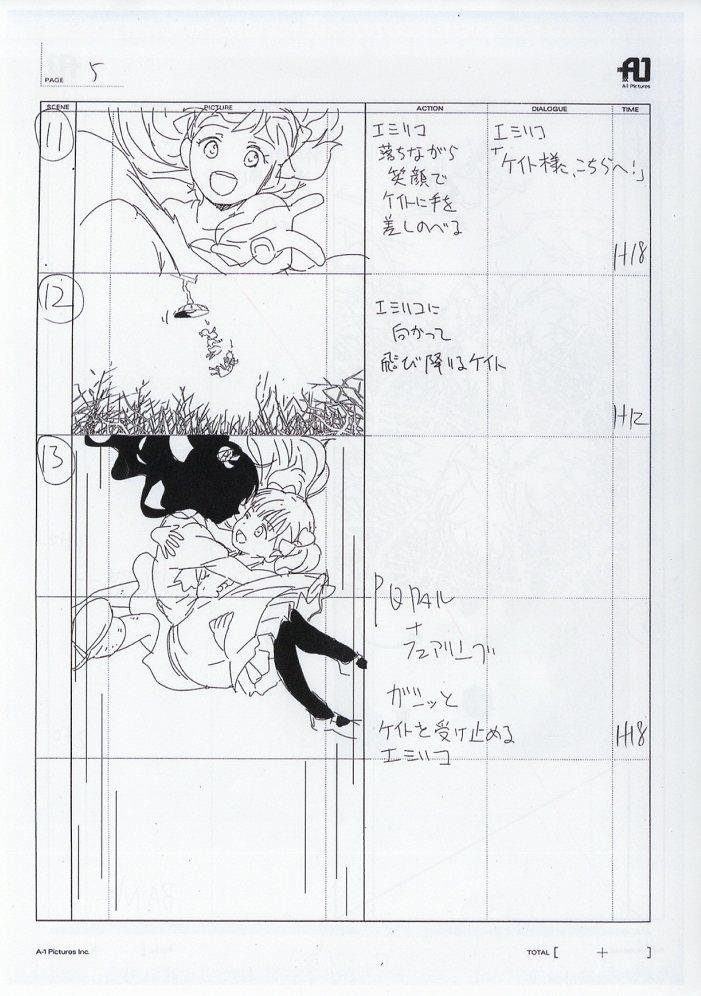 PAGE 5
A-1 Pictures
SCENE PICTURE ACTION DIALOGUE TIME
11
エミリコ
落ちながら
笑顔で
ケイトに手を
差しのべる
エミリコ
「ケイト様、こちらへ!」
1+18
12
エミリコに
向かって
飛び降りるケイト
1+12
13
+
ケイトを受け止める
エミリコ
1+18
A-1 Pictures Inc.
TOTAL [ + ]